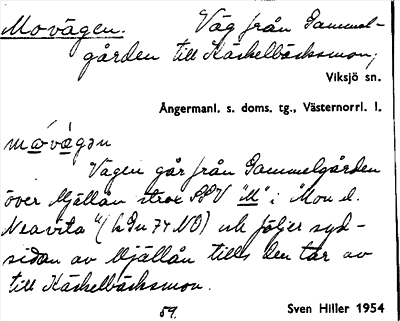 Movägen. Väg från Gammel-
gården till Käskelbäcksmon;
Viksjö sn.
Ångermanl. s. doms. tg., Västernorrl. l.
mo̲´va̲`gən
Vägen går från Gammelgården
över Mjällån strax SSV "M" i "Mon d.
Neavita" ( NO) och följer syd-
sidan av Mjällån tills den tar av
till Käskelbäcksmon.
59.
Sven Hiller 1954